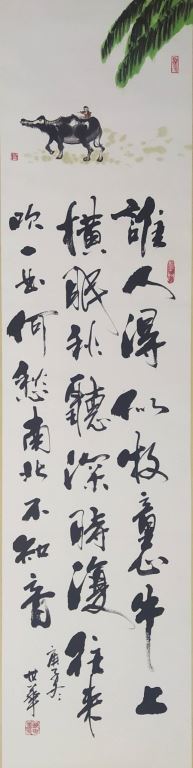 誰人得似牧童心牛上
横眠秋聽深時復往来
吹一曲何愁南北不知音
庚子冬
世華